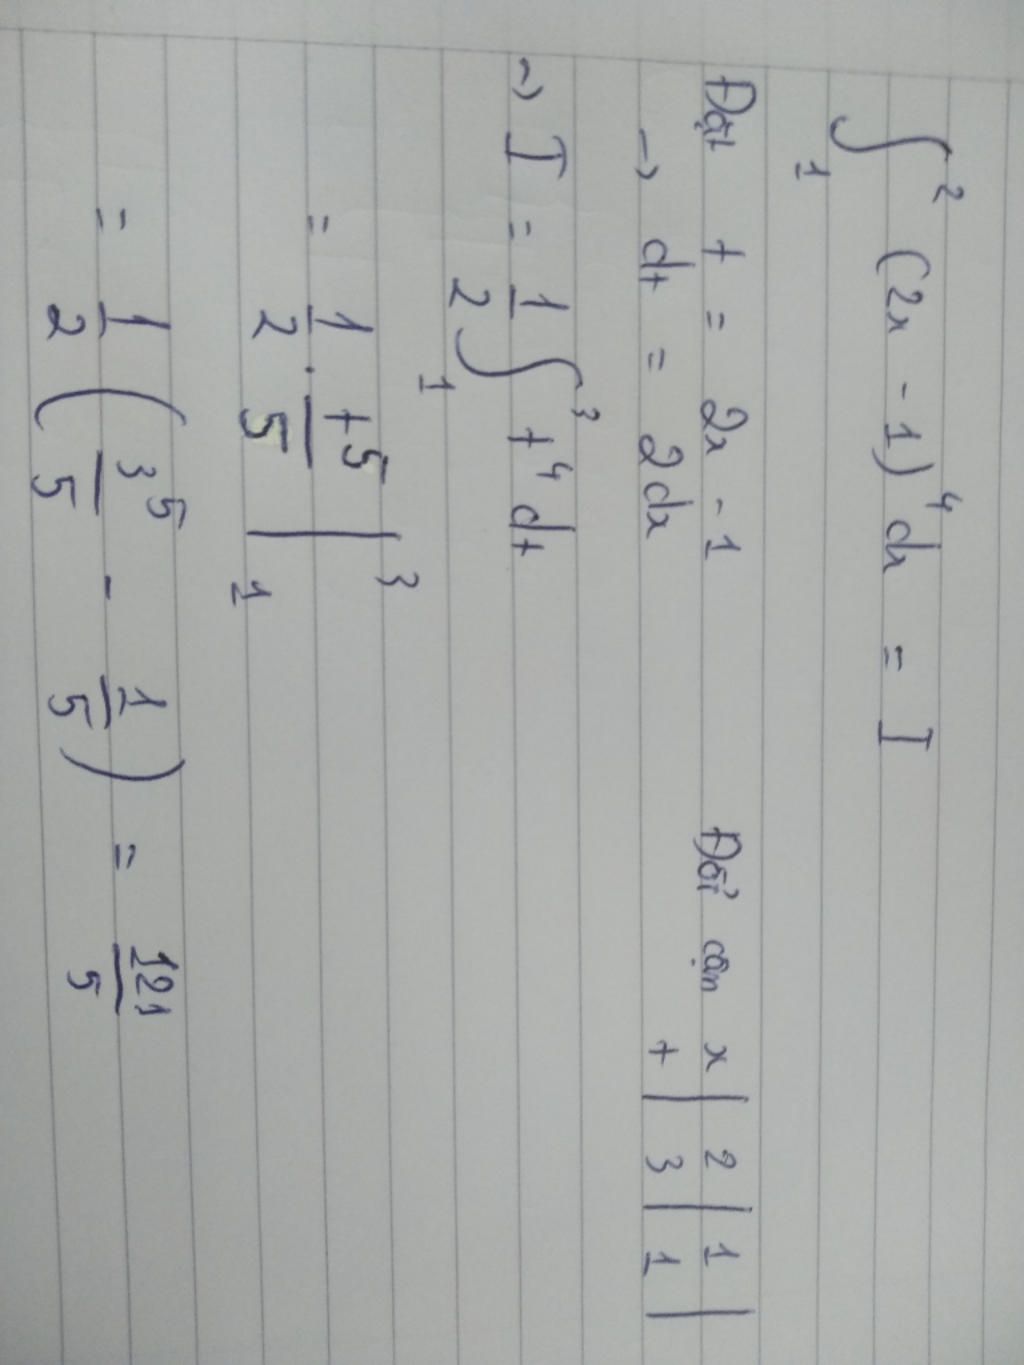 ∫₁² (2x - 1)⁴ dx = I
Đặt t = 2x - 1 Đổi cận x | 2 | 1 |
→ dt = 2dx t | 3 | 1 |
→ I = 1/2 ∫₁³ t⁴ dt
= 1/2 . t⁵/5 |₁³
= 1/2 (3⁵/5 - 1/5) = 121/5